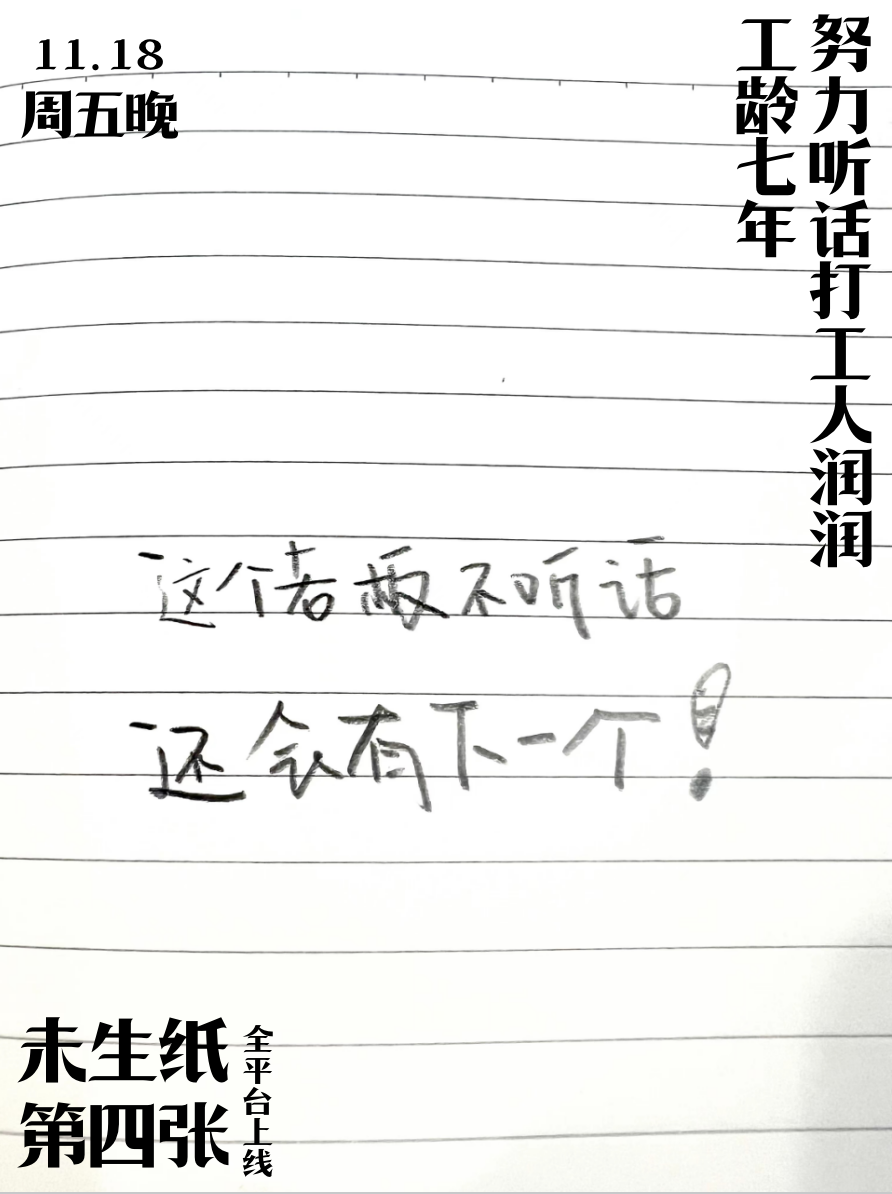 11.18
周五晚
努力听话打工人润润
工龄七年
这个不听话
还会有下一个!
未生纸
第四张
全平台上线